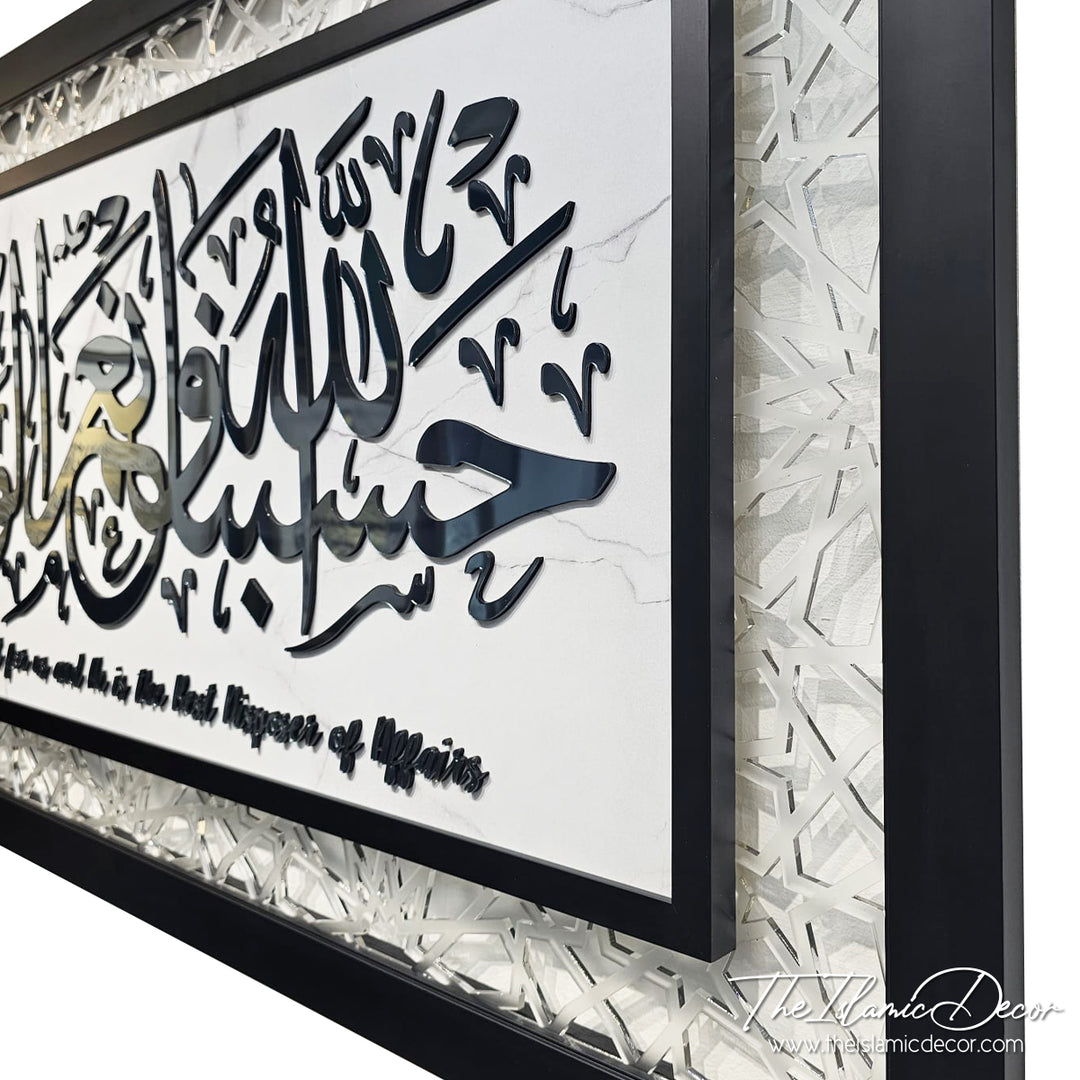 حسبنا الله ونعم
for us and He is the Best Disposer of Affairs
The Islamic Decor
www.theislamicdecor.com